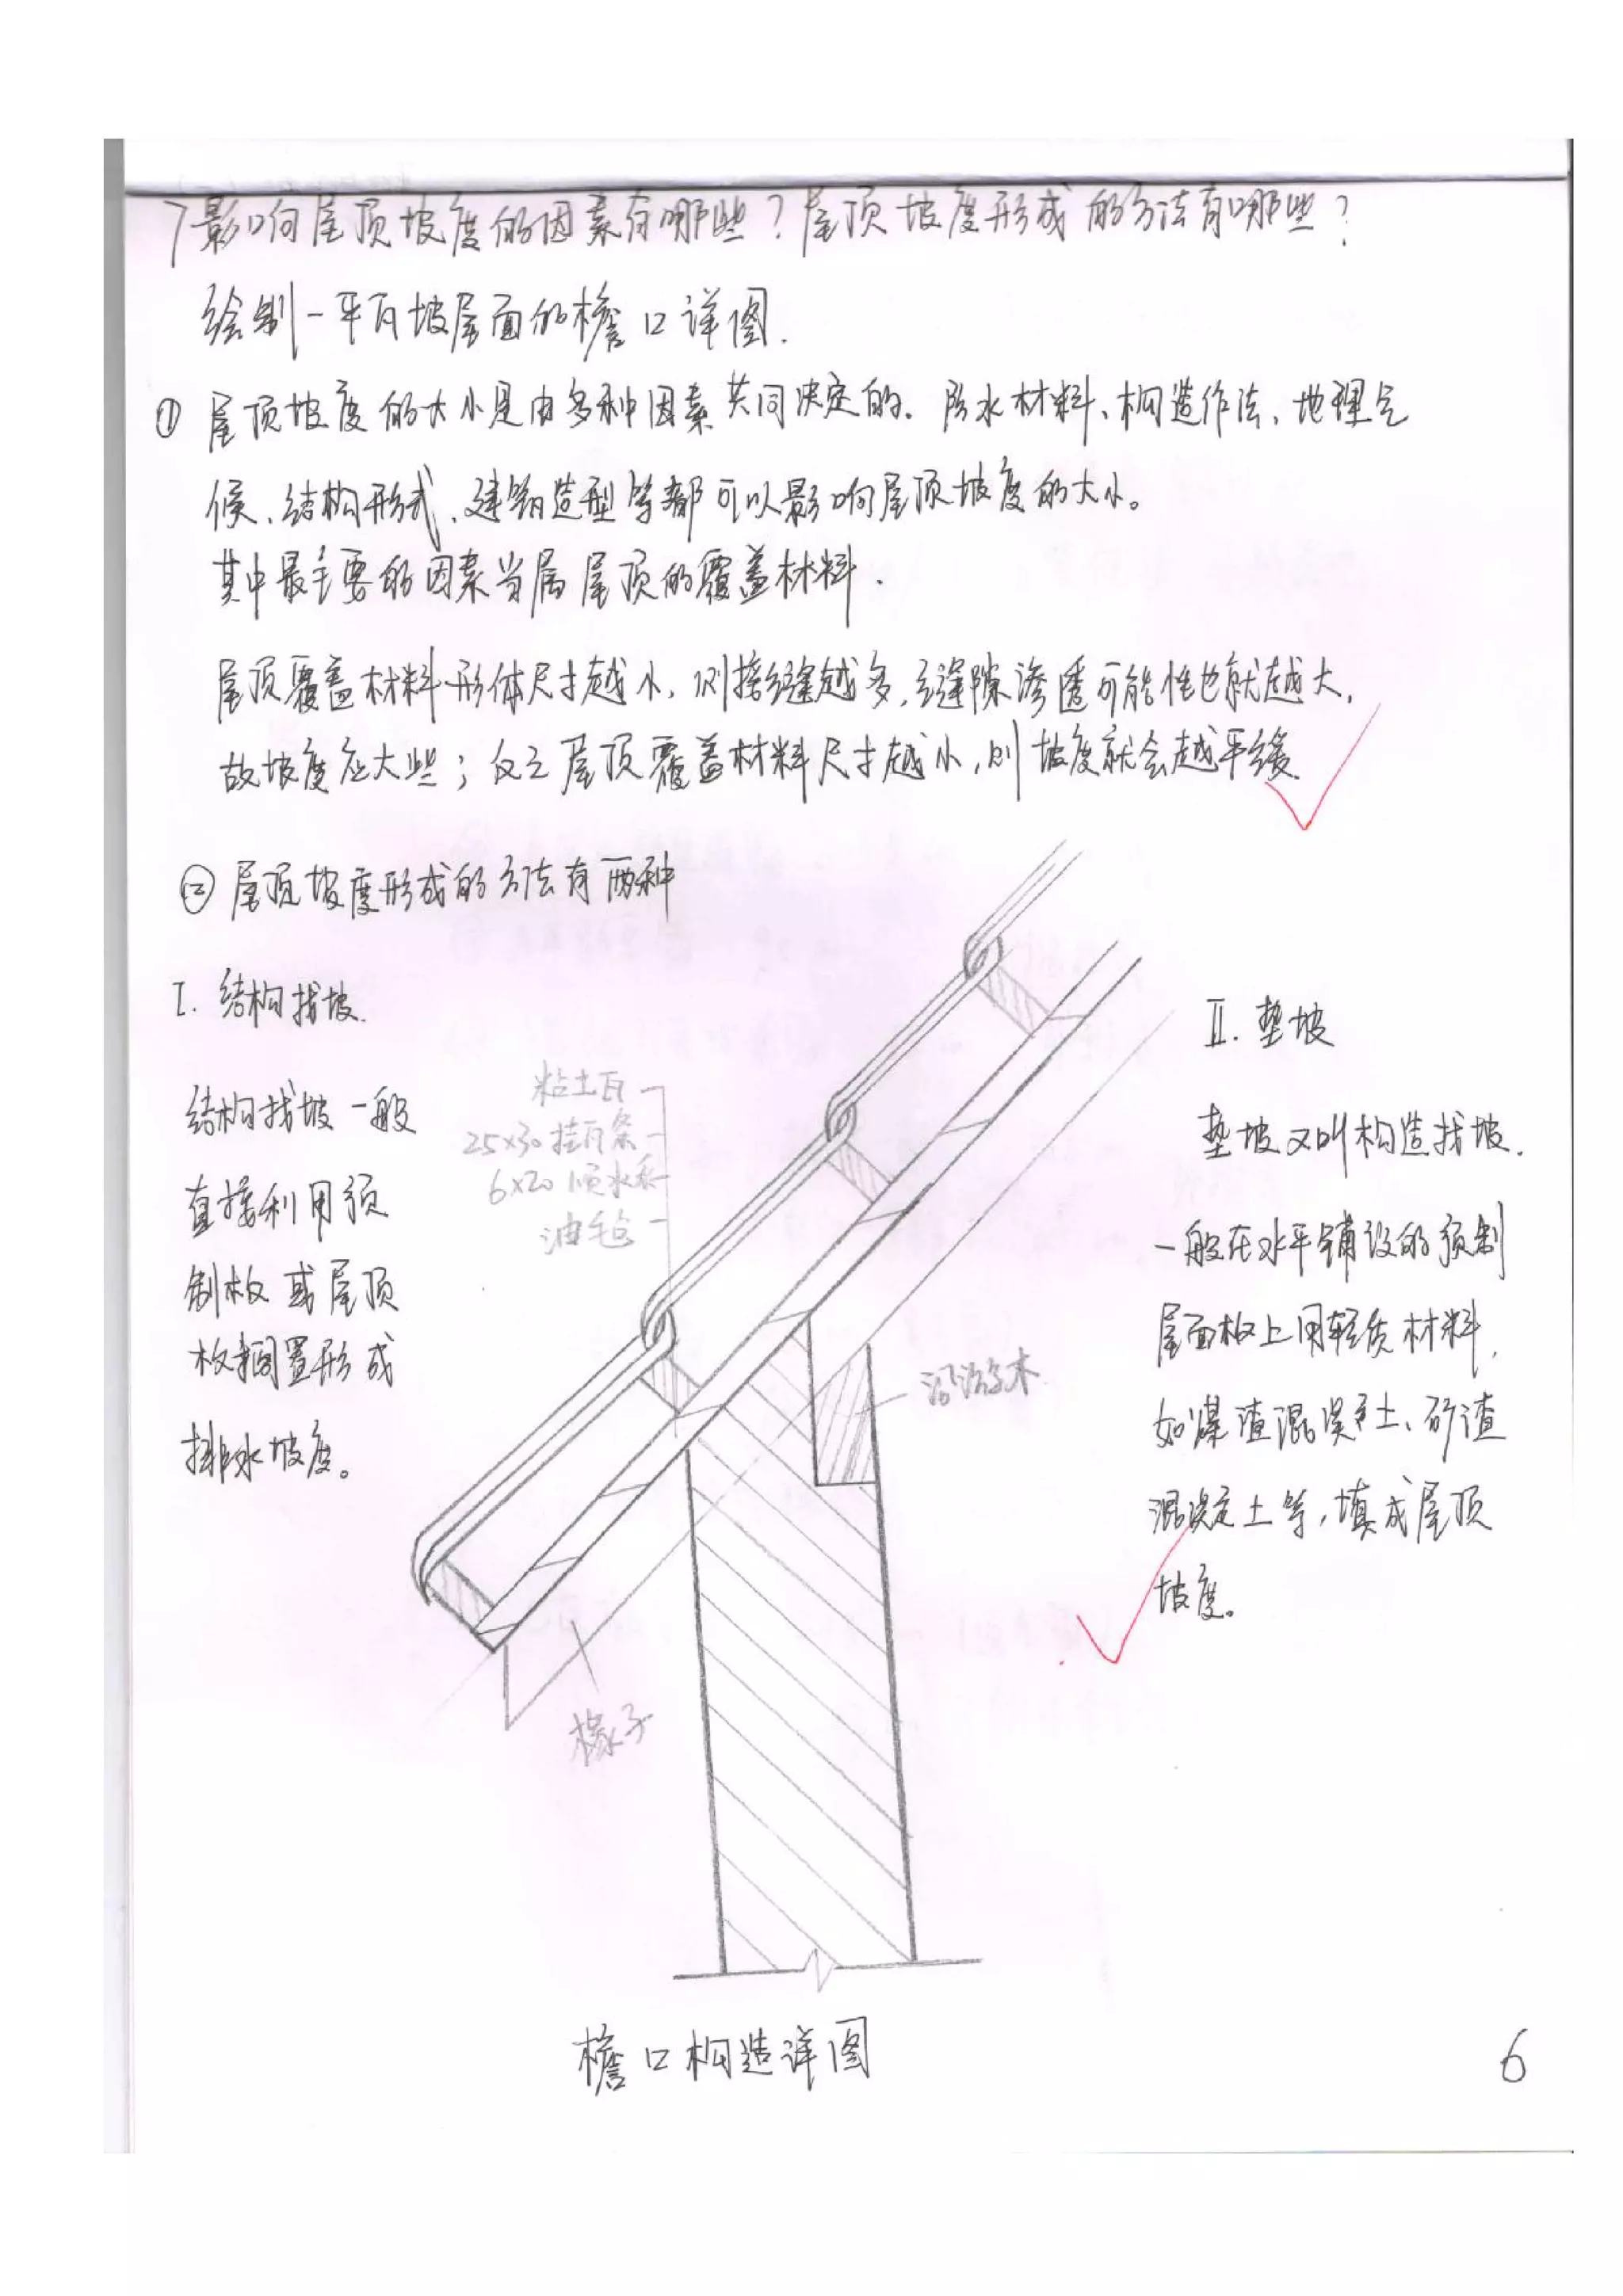 7 影响屋顶坡度的因素有哪些？屋顶坡度形成的方法有哪些？
绘制一平瓦坡屋面的檐口详图.
① 屋顶坡度的大小是由多种因素共同决定的. 防水材料、构造作法、地理气
候、结构形式、建筑造型等都可以影响屋顶坡度的大小。
其中最主要的因素当属屋顶的覆盖材料.
屋顶覆盖材料形体尺寸越小, 则接缝越多, 缝隙渗透可能性也就越大,
故坡度应大些; 反之屋顶覆盖材料尺寸越小, 则坡度就会越平缓
② 屋顶坡度形成的方法有两种
I. 结构找坡.
结构找坡一般
直接利用预
制板或屋顶
板搁置形成
排水坡度。
粘土瓦
25×30 挂瓦条
6×20 顺水条
油毛毡
沿游木
椽子
II. 垫坡
垫坡又叫构造找坡.
一般在水平铺设的预制
屋面板上用轻质材料,
如煤渣混凝土、矿渣
混凝土等, 填成屋顶
坡度。
檐口构造详图
6